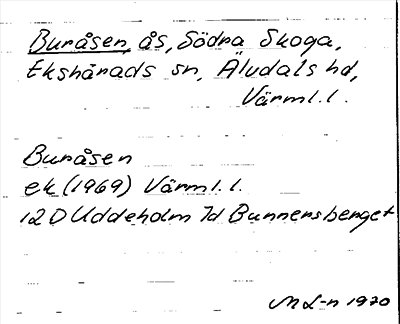 Buråsen, ås, Södra Skoga,
Ekshärads sn, Älvdals hd,
Värml. l.
Buråsen
ek (1969) Värml. l.
12 D Uddeholm 7d Bunnersberget
M L-n 1970